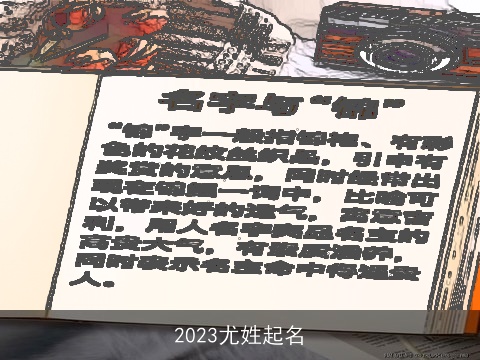 名字与“锦”
“锦”字一般指锦袍、有彩
色的花纹丝织品，引申有
美赞的意思，同时经常出
现在锦鲤一词中，比喻可
以带来好的运气，寓意吉
利，用人名字突显名主的
高贵大气，有气质涵养，
同时表示名主命中得遇贵
人。
2023尤姓起名